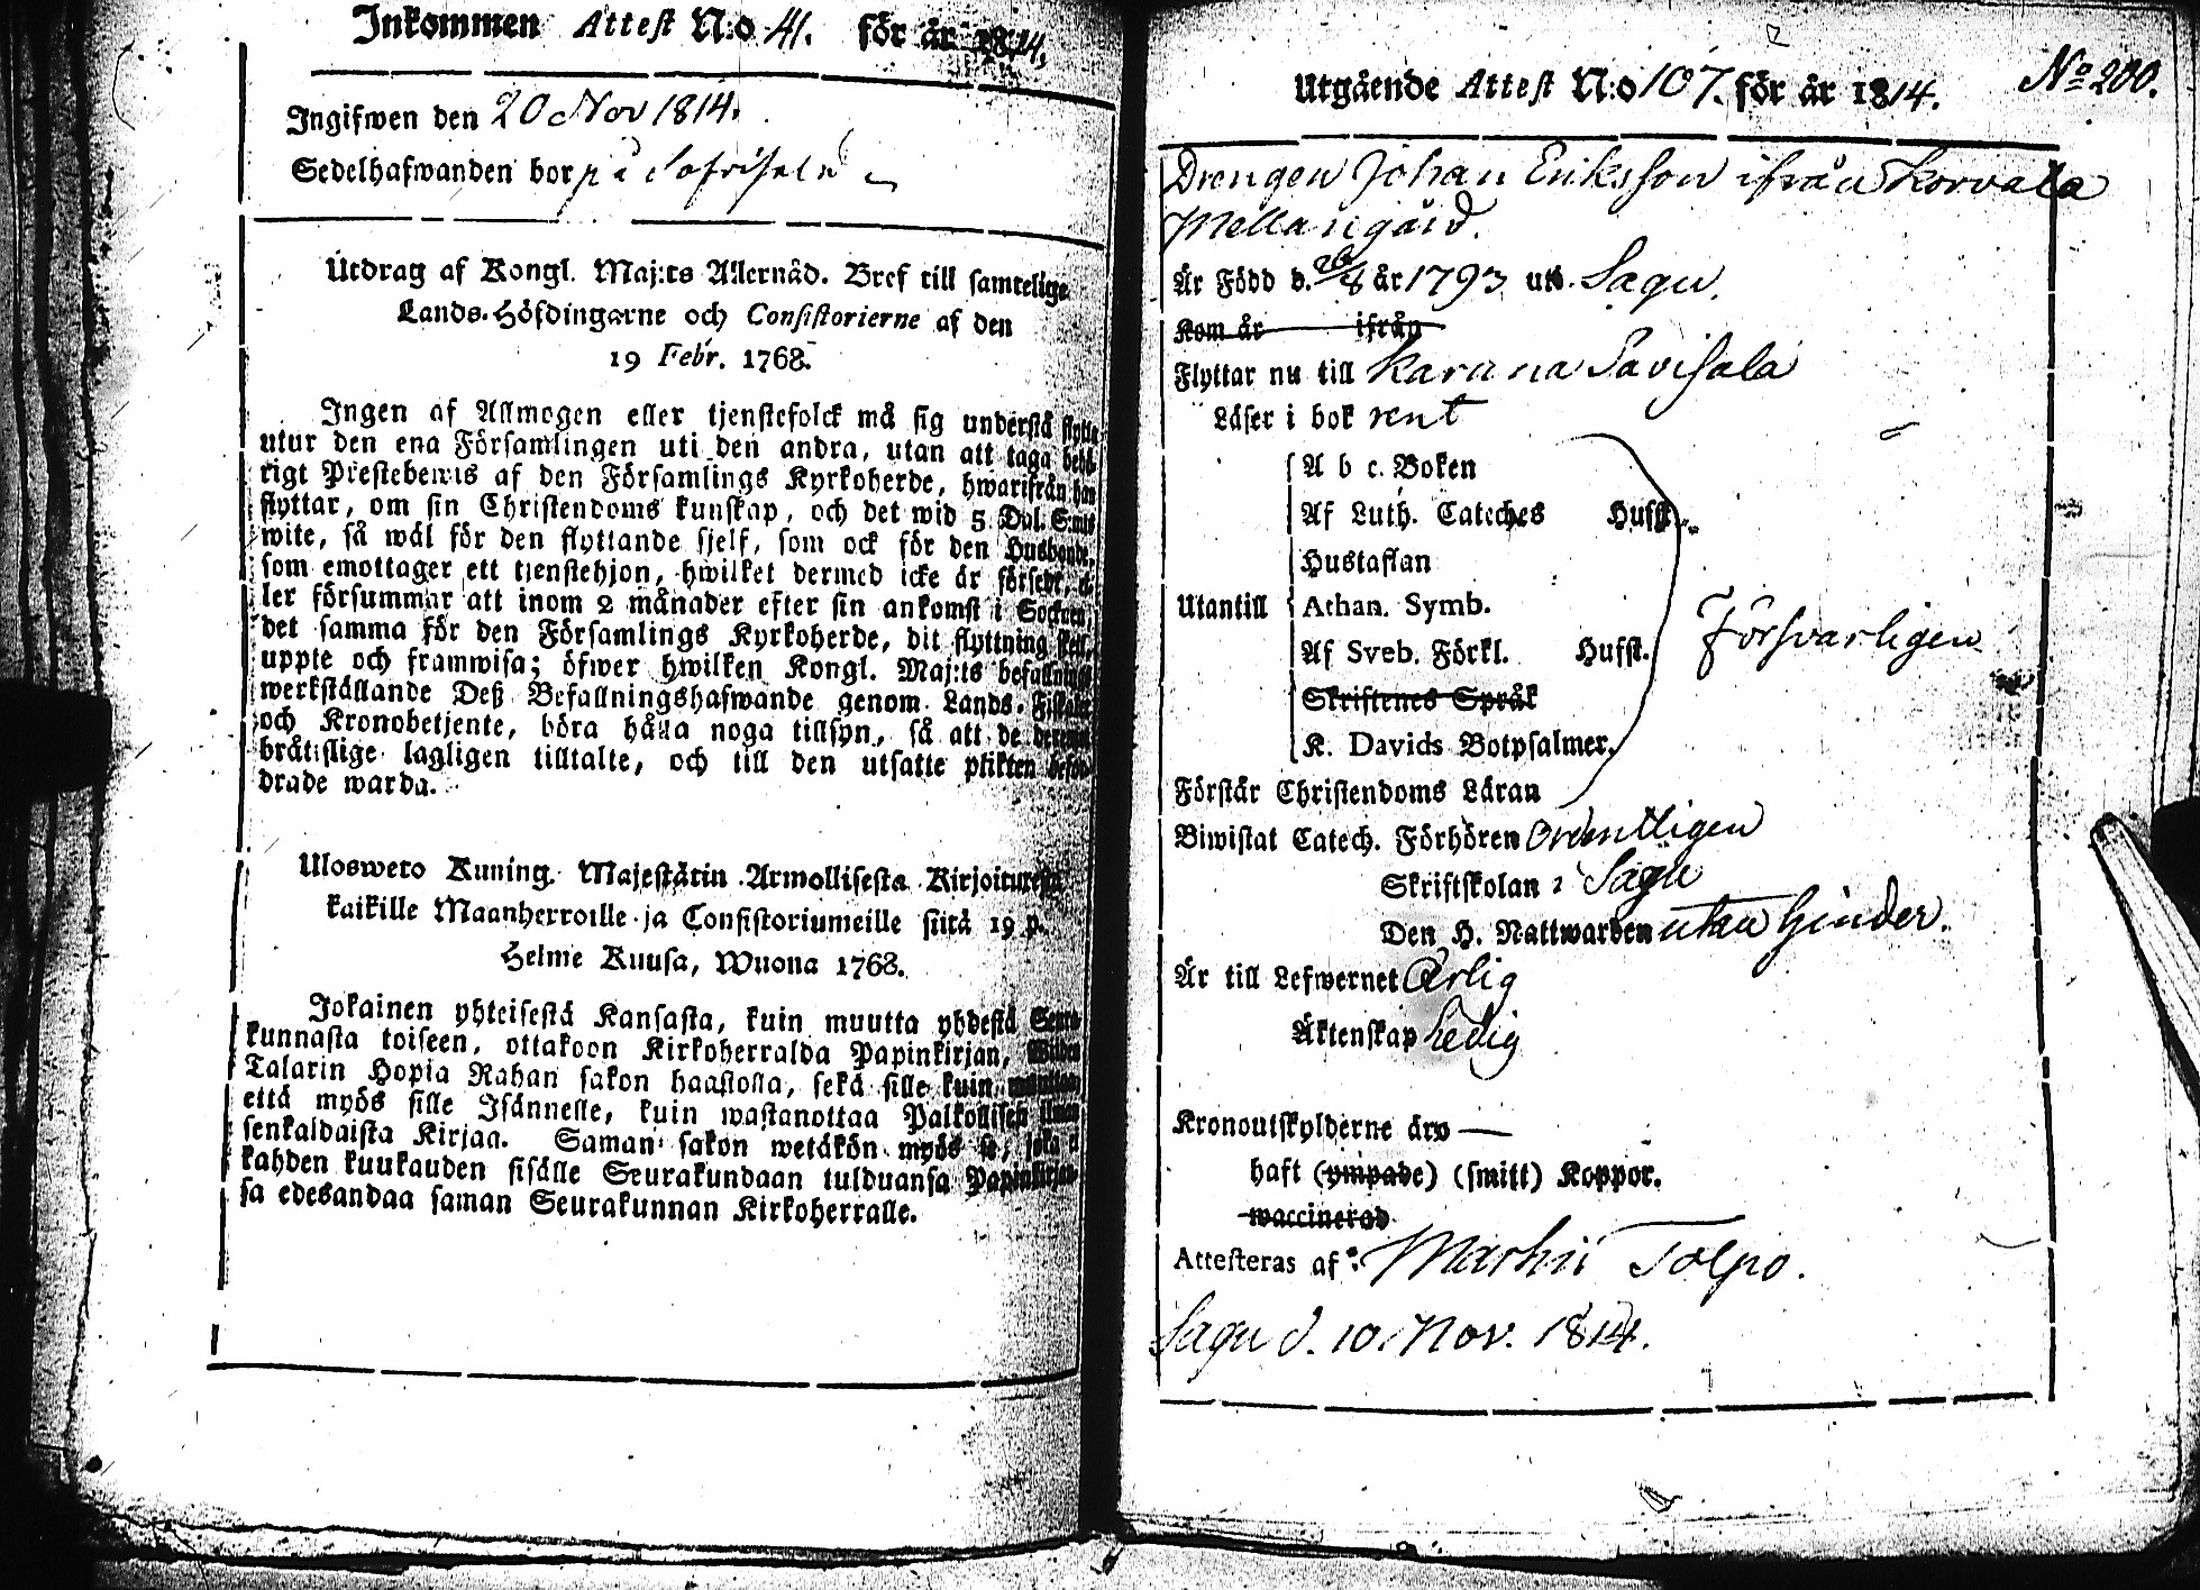 Inkommen Attest N:o 41. för år 1814.
Ingifwen den 20 Nov 1814.
Sedelhafwanden bor på
Utdrag af Kongl. Maj:ts Allernåd. Bref till samtelige
Lands-Höfdingarne och Consistorierne af den
19 Febr. 1768.
Ingen af Allmogen eller tjenstefolck må sig understå flytta
utur den ena Församlingen uti den andra, utan att taga behö-
rigt Prestebewis af den Församlings Kyrkoherde, hwarifrån han
flyttar, om sin Christendoms kunskap, och det wid 5 Dal. S:mts
wite, så wäl för den flyttande sjelf, som ock för den Husbonde,
som emottager ett tjenstehjon, hwilket dermed icke är försedt, el-
ler försummar att inom 2 månader efter sin ankomst i Socknen,
det samma för den Församlings Kyrkoherde, dit flyttning sker,
uppte och framwisa; öfwer hwilken Kongl. Maj:ts befallnings
werkställande Deß Befallningshafwande genom Lands-Fiskaler
och Kronobetjente, böra hålla noga tillsyn, så att de deremot
bråtslige lagligen tilltalte, och till den utsatte plikten beför-
drade warda.
Ulosweto Kuning. Majestätin Armollisesta Kirjoituxesta
kaikille Maanherroille ja Consistoriumeille siitä 19 p.
Helme Kuusa, Wuona 1768.
Jokainen yhteisestä Kansasta, kuin muutta yhdestä Seura-
kunnasta toiseen, ottakoon Kirkoherralda Papinkirjan, Wiiden
Talarin Hopia Rahan sakon haastolla, sekä sille kuin muuttaa,
että myös sille Isännelle, kuin wastanottaa Palkollisen ilman
senkaldaista Kirjaa. Saman sakon wetäkön myös se, joka ei
kahden kuukauden sisälle Seurakundaan tulduansa Papinkirjan-
sa edesandaa saman Seurakunnan Kirkoherralle.
No 200.
Utgående Attest N:o 107. för år 1814.
Drengen Johan Eriksson ifrån Korvala
Mellangård.
Är Född d. 26/8 år 1793 uti Sagu.
Kom år ifrån
Flyttar nu till Karuna Savisala
Läser i bok rent
A b c. Boken
Af Luth. Cateches Hufst.
Hustaflan
Utantill Athan. Symb.
Af Sveb. Förkl. Hufst. Försvarligen
Skriftenes Språk
K. Davids Botpsalmer.
Förstår Christendoms Läran
Biwistat Catech. Förhören Ordentligen
Skriftskolan i Sagu
Den H. Nattwarden utan hinder.
Är till Lefwernet Ärlig
Äktenskap Ledig
Kronoutskylderne äro —
haft (ympade) (smitt) Koppor.
waccinerad
Attesteras af: Marhii Tolpo.
Sagu d. 10. Nov. 1814.